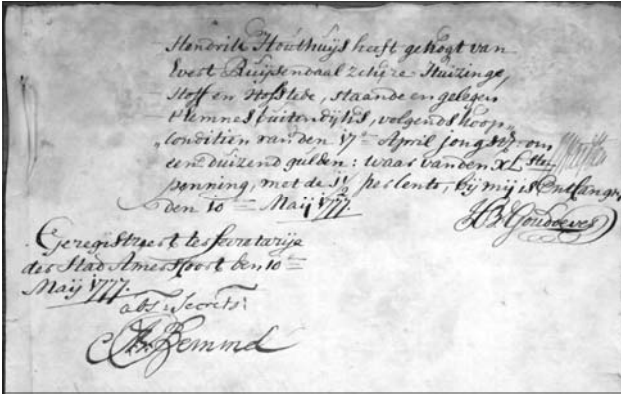 Hendrik Houthuijs heeft gekogt van
Evert Ruijsendaal zekere Huizinge,
Hoff en Hofstede, staande en gelegen
Eemnes buitendijks, volgends koop
conditien van den 17e April jongst, om
een duizend gulden: waar van den XLste
penning, met de 1½ per Cento, bij mij is Entfangen
den 10e Maij 1777.
H V Goudoever
Geregistreert ter Secretarije
der Stad Amersfoort den 10e
Maij 1777.
abs: Secrets:
Bemmel